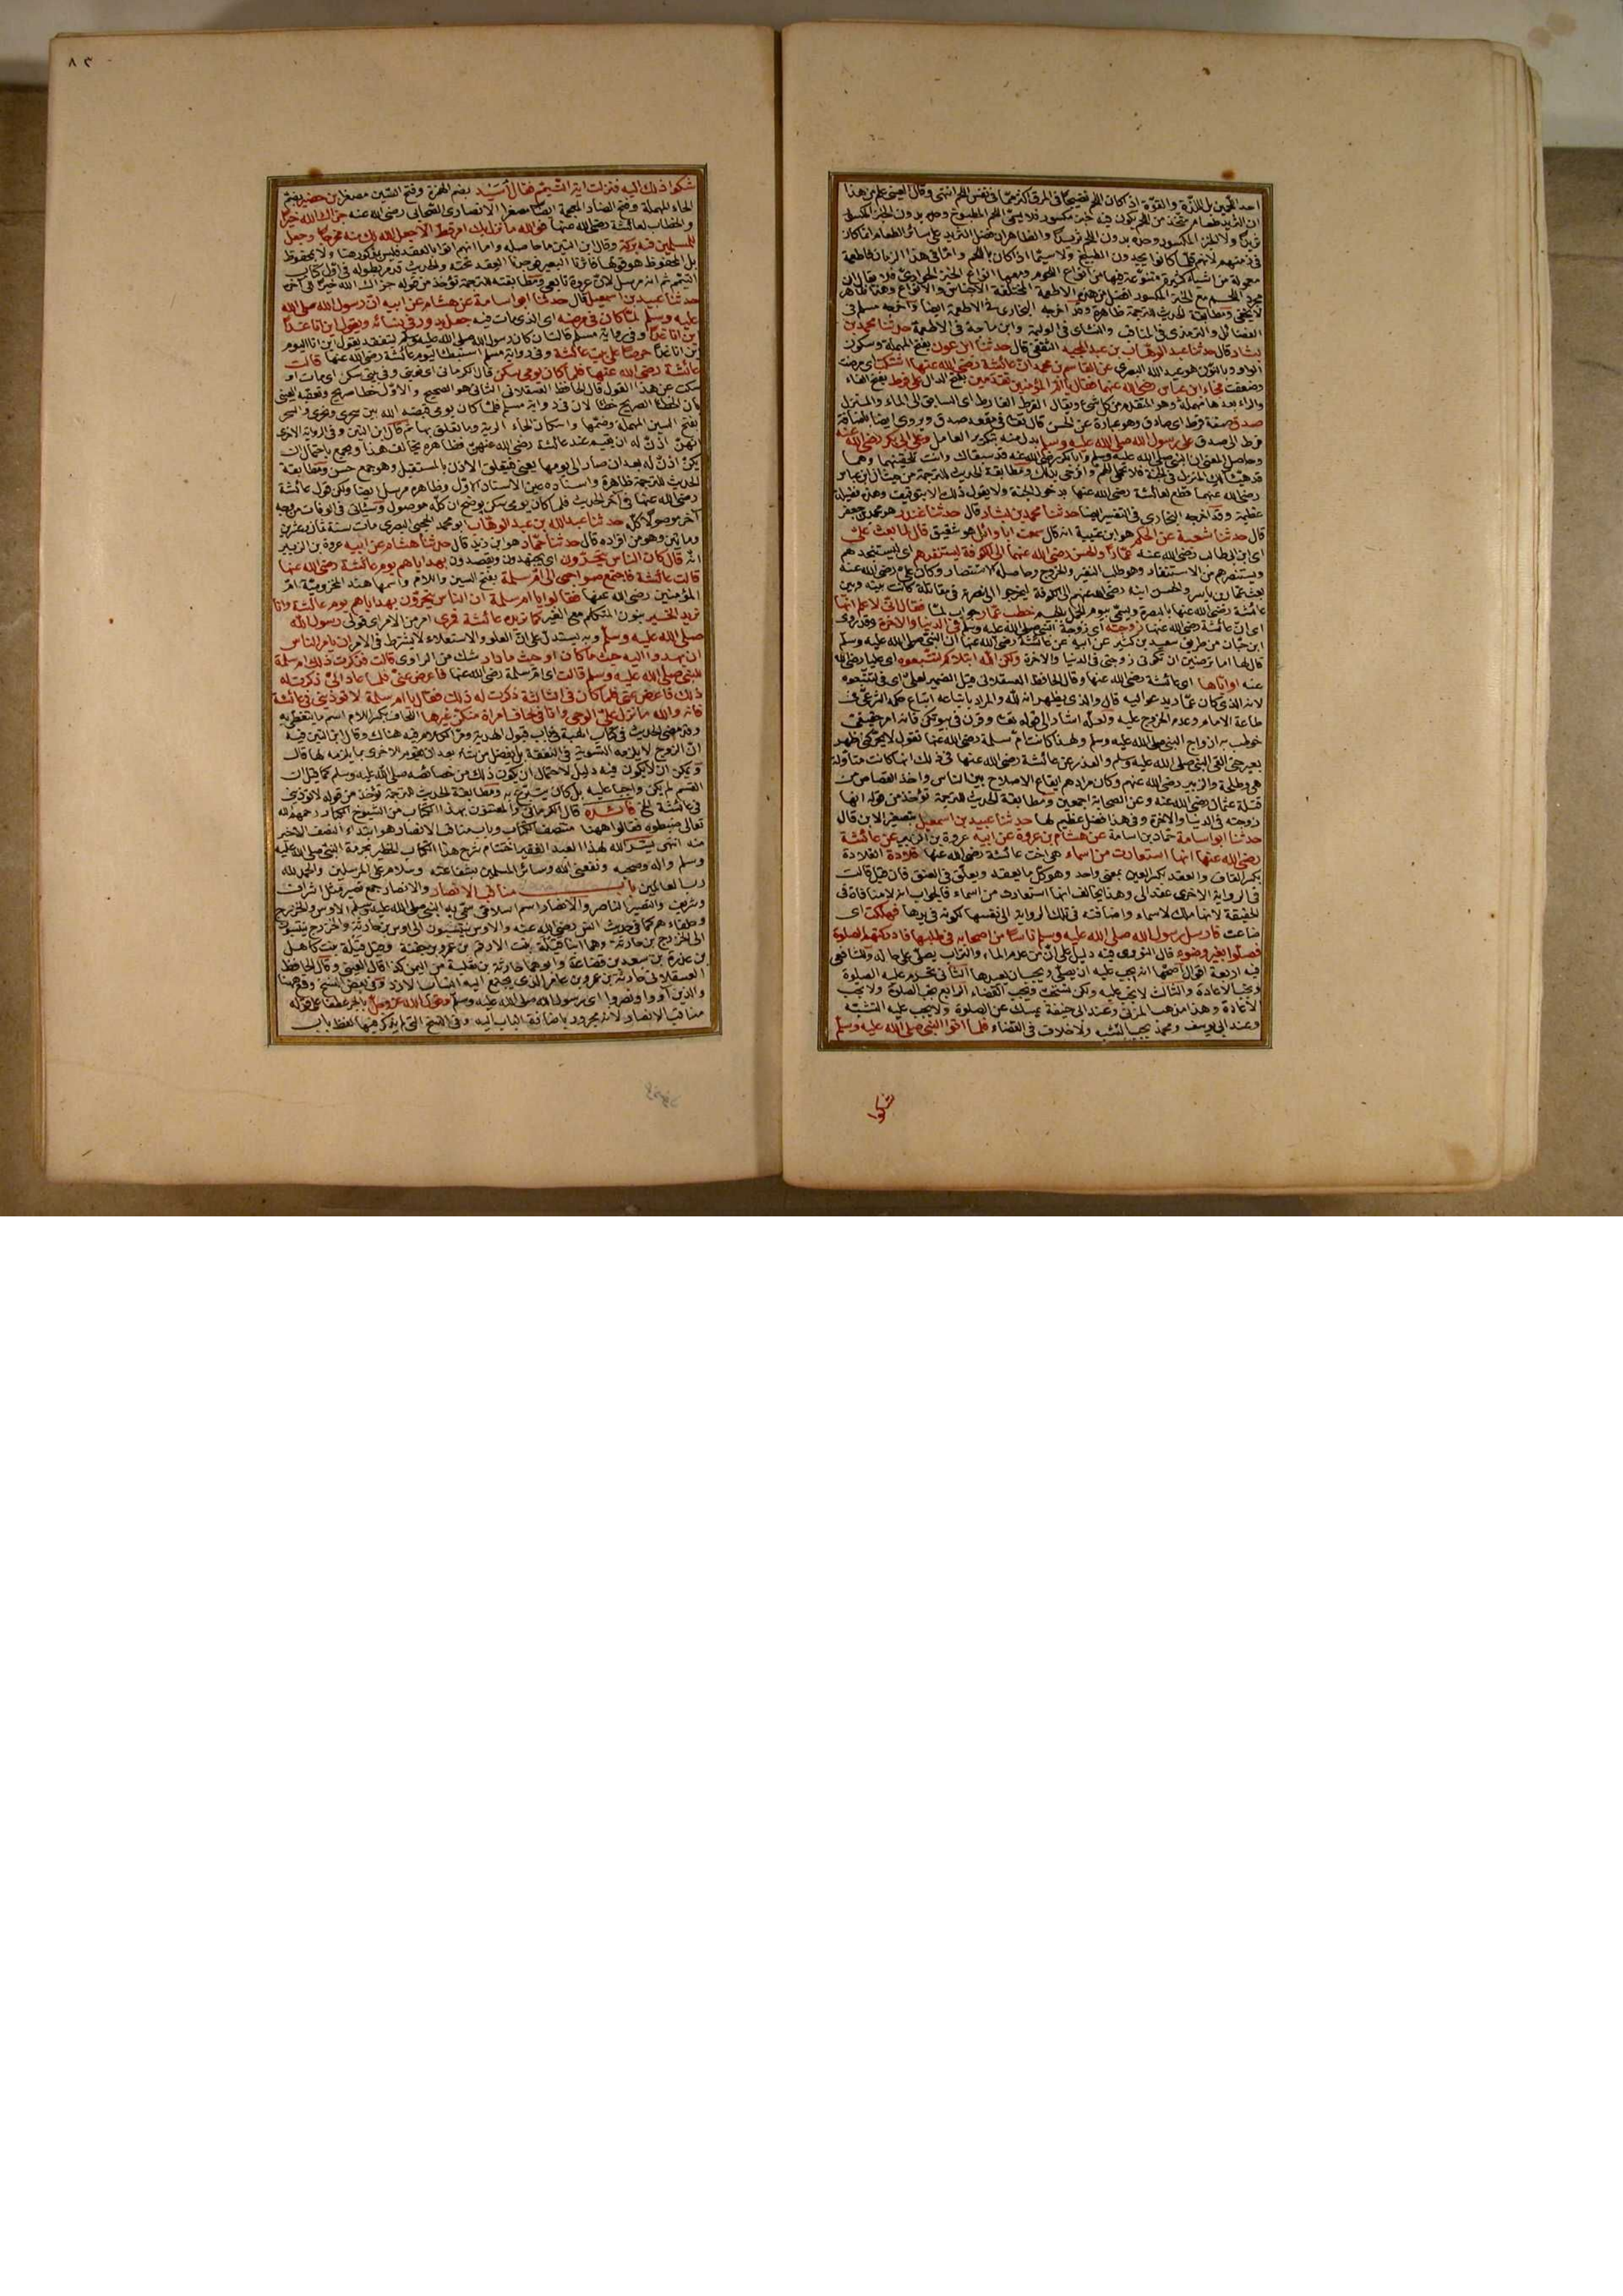 احد اللحمين بل اللذة والقوة اذا كان اللحم نضيجا في المرق اكثر مما في نفس اللحم انتهى وقال العيني علم من هذا
ان الثريد طعام متخذ من اللحم يكون فيه خبز مكسور فلا يسمى اللحم المطبوخ وحده بدون الخبز المكسور
ثريدا ولا الخبز المكسور وحده بدون اللحم ثريدا والظاهر ان فضل الثريد على سائر الطعام انما كان
في زمنهم لانهم قلما كانوا يجدون الطبيخ ولا سيما اذا كان باللحم واما في هذا الزمان فاطعمة
معمولة من اشياء كثيرة متنوعة فيها من انواع اللحوم ومعها انواع الخبز الحوارى فلا يقال ان
مجرد اللحم مع الخبز المكسور افضل من هذه الاطعمة المختلفة الاجناس والانواع وهذا ظاهر
لا يخفى ومطابقة الحديث للترجمة ظاهرة وقد اخرجه البخاري في الاطعمة ايضا واخرجه مسلم في
الفضائل والترمذي في المناقب والنسائي في الوليمة وابن ماجة في الاطعمة حدثنا محمد بن
بشار قال حدثنا عبد الوهاب بن عبد المجيد الثقفي قال حدثنا ابن عون بفتح المهملة وسكون
الواو وبالنون هو عبد الله البصري عن القاسم بن محمد ان عائشة رضي الله عنها اشتكت اي مرضت
وضعفت فجاء ابن عباس رضي الله عنهما فقال يا ام المؤمنين تقدمين بفتح الدال على فرط بفتح الفاء
والراء بعدها مهملة وهو المتقدم من كل شيء ويقال الفرط الفارط اي السابق الى الماء والمنزل
صدق صفة فرط اي صادق وهو عبارة عن الحسن قال تعالى في مقعد صدق ويروى ايضا باضافة
فرط الى صدق على رسول الله صلى الله عليه وسلم بدل منه بتكرير العامل وعلى ابي بكر رضي الله عنه
وحاصل المعنى ان النبي صلى الله عليه وسلم وابا بكر رضي الله عنه قد سبقاك وانت تلحقينهما وهما
قد هيئا لك المنزل في الجنة فلا تحملي الهم وافرحي بذلك ومطابقة الحديث للترجمة من حيث ان ابن عباس
رضي الله عنهما قطع لعائشة رضي الله عنها بدخول الجنة ولا يقول ذلك الا بتوقيف وهذه فضيلة
عظيمة وقد اخرجه البخاري في التفسير ايضا حدثنا محمد بن بشار قال حدثنا غندر هو محمد بن جعفر
قال حدثنا شعبة عن الحكم هو ابن عتيبة انه قال سمعت ابا وائل هو شقيق قال لما بعث علي
اي ابن ابي طالب رضي الله عنه عمارا والحسن رضي الله عنهما الى الكوفة ليستنفرهم اي ليستنجدهم
ويستنصرهم من الاستنفار وهو طلب النفير والخروج وحاصله الاستنصار وكان علي رضي الله عنه
بعث عمار بن ياسر والحسن ابنه رضي الله عنهم الى الكوفة ليخرجوا الى نصرته في مقاتلة كانت بينه وبين
عائشة رضي الله عنها بالبصرة ويسمى بيوم الجمل بالجيم خطب عمار جواب لما فقال اني لاعلم انها
اي ان عائشة رضي الله عنها زوجته اي زوجة النبي صلى الله عليه وسلم في الدنيا والاخرة وقد روى
ابن حبان من طريق سعيد بن كثير عن ابيه عن عائشة رضي الله عنها ان النبي صلى الله عليه وسلم
قال لها اما ترضين ان تكوني زوجتي في الدنيا والاخرة ولكن الله ابتلاكم لتتبعوه اي عليا رضي الله
عنه او اياها اي عائشة رضي الله عنها وقال الحافظ العسقلاني قيل الضمير لعلي اي في لتتبعوه
لانه الذي كان عمار يدعو اليه قال والذي يظهر انه لله والمراد باتباعه اتباع حكمه الشرعي في
طاعة الامام وعدم الخروج عليه ولعله اشار الى قوله تعالى وقرن في بيوتكن فانه امر حقيقي
خوطب به ازواج النبي صلى الله عليه وسلم ولهذا كانت ام سلمة رضي الله عنها تقول لا يحركني ظهر
بعير حتى القى النبي صلى الله عليه وسلم والعذر عن عائشة رضي الله عنها في ذلك انها كانت متأولة
هي وطلحة والزبير رضي الله عنهم وكان مرادهم ايقاع الاصلاح بين الناس واخذ القصاص من
قتلة عثمان رضي الله عنه وعن الصحابة اجمعين ومطابقة الحديث للترجمة تؤخذ من قوله انها
زوجته في الدنيا والاخرة وفي هذا فضل عظيم لها حدثنا عبيد بن اسمعيل بتصغير الابن قال
حدثنا ابو اسامة حماد بن اسامة عن هشام بن عروة عن ابيه عروة بن الزبير عن عائشة
رضي الله عنها انها استعارت من اسماء هي اخت عائشة رضي الله عنها قلادة القلادة
بكسر القاف والعقد بكسر العين بمعنى واحد وهو كل ما يعقد ويعلق في العنق فان قيل قالت
في الرواية الاخرى عقد لي وهذا يخالف انها استعارت من اسماء فالجواب انه لا منافاة في
الحقيقة لانها ملك لاسماء واضافته في تلك الرواية الى نفسها لكونه في يدها فهلكت اي
ضاعت فارسل رسول الله صلى الله عليه وسلم ناسا من اصحابه في طلبها فادركتهم الصلوة
فصلوا بغير وضوء قال النووي فيه دليل على ان من عدم الماء والتراب يصلي على حاله وللشافعي
فيه اربعة اقوال اصحها انه يجب عليه ان يصلي ويجب ان يعيدها الثاني تحرم عليه الصلوة
وتجب الاعادة والثالث لا تجب عليه ولكن تستحب ويجب القضاء الرابع تجب الصلوة ولا تجب
الاعادة وهذا مذهب المزني وعند ابي حنيفة يمسك عن الصلوة ولا يجب عليه التشبه
وعند ابي يوسف ومحمد يجب التشبه ولا خلاف في القضاء فلما اتوا النبي صلى الله عليه وسلم
شكوا
٨٣
شكوا ذلك اليه فنزلت اية التيمم فقال اسيد بضم الهمزة وفتح السين مصغرا بن حضير بضم
الحاء المهملة وفتح الضاد المعجمة ايضا مصغرا الانصاري الصحابي رضي الله عنه جزاك الله خيرا
والخطاب لعائشة رضي الله عنها فوالله ما نزل بك امر قط الا جعل الله لك منه مخرجا وجعل
للمسلمين فيه بركة وقال ابن التين ما حاصله واما انهم اتوا بالعقد فليس مذكور هنا ولا بمحفوظ
بل المحفوظ هو قولها فاثرنا البعير فوجدنا العقد تحته والحديث قد مر بطوله في اول كتاب
التيمم ثم انه مرسل لان عروة تابعي ومطابقته للترجمة تؤخذ من قوله جزاك الله خيرا الى آخره
حدثنا عبيد بن اسمعيل قال حدثنا ابو اسامة عن هشام عن ابيه ان رسول الله صلى الله
عليه وسلم لما كان في مرضه اي الذي مات فيه جعل يدور في نسائه ويقول اين انا غدا
اين انا غدا وفي رواية مسلم قالت ان كان رسول الله صلى الله عليه وسلم ليتفقد يقول اين انا اليوم
اين انا غدا حرصا على بيت عائشة وفي رواية مسلم استبطاء ليوم عائشة رضي الله عنها قالت
عائشة رضي الله عنها فلما كان يومي سكن قال الكرماني اي في بيتي سكن اي مات او
سكت عن هذا القول قال الحافظ العسقلاني الثاني هو الصحيح والاول خطا صريح وتعقبه العيني
بان الخطا الصريح خطا لان في رواية مسلم فلما كان يومي قبضه الله بين سحري ونحري والسحر
بفتح السين المهملة وضمها واسكان الحاء الرية وما تعلق بها ثم قال ابن التين وفي الرواية الاخرى
انهن اذن له ان يقيم عند عائشة رضي الله عنهن فظاهره يخالف هذا ويجمع باحتمال ان
يكن اذن له بعد ان صار الى يومها يعني فيتعلق الاذن بالمستقبل وهو جمع حسن ومطابقة
الحديث للترجمة ظاهرة واسناده عين الاسناد الاول وظاهره مرسل ايضا ولكن قول عائشة
رضي الله عنها في آخر الحديث فلما كان يومي سكن يوضح ان كله موصول وسيأتي في الوفات من وجه
آخر موصولا كله حدثنا عبد الله بن عبد الوهاب ابو محمد الحجبي البصري مات سنة ثمان وعشرين
ومائتين وهو من افراده قال حدثنا حماد هو ابن زيد قال حدثنا هشام عن ابيه عروة بن الزبير
انه قال كان الناس يتحرون اي يجتهدون ويقصدون بهداياهم يوم عائشة رضي الله عنها
قالت عائشة فاجتمع صواحبي الى ام سلمة بفتح السين واللام واسمها هند المخزومية ام
المؤمنين رضي الله عنها فقالوا يا ام سلمة ان الناس يتحرون بهداياهم يوم عائشة وانا
نريد الخير بنون المتكلم مع الغير كما تريده عائشة فمري امر من الامر اي قولي رسول الله
صلى الله عليه وسلم وبه يستدل على ان العلو والاستعلاء لا يشترط في الامر ان يأمر الناس
ان يهدوا اليه حيث ما كان او حيث ما دار شك من الراوي قالت فذكرت ذلك ام سلمة
للنبي صلى الله عليه وسلم قالت اي ام سلمة رضي الله عنها فاعرض عني فلما عاد الي ذكرت له
ذلك فاعرض عني فلما كان في الثالثة ذكرت له ذلك فقال يا ام سلمة لا تؤذيني في عائشة
فانه والله ما نزل علي الوحي وانا في لحاف امراة منكن غيرها اللحاف بكسر اللام اسم ما يتغطى به
وقد مضى الحديث في كتاب الهبة في باب قبول الهدية ومر الكلام فيه هناك وقال ابن التين فيه
ان الزوج لا يلزمه التسوية في النفقة بل يفضل من شاء بعد ان يقوم للاخرى بما يلزمه لها قال
ويمكن ان لا يكون فيه دليل لاحتمال ان يكون ذلك من خصائصه صلى الله عليه وسلم كما قيل ان
القسم لم يكن واجبا عليه بل كان يتبرع به ومطابقة الحديث للترجمة تؤخذ من قوله لا تؤذيني
في عائشة الخ فائدة قال الكرماني واعلم ان المعتنون بهذا الكتاب من الشيوخ الكبار رحمهم الله
تعالى ضبطوه فقالوا ههنا منتصف الكتاب وباب مناقب الانصار هو ابتداء النصف الاخير
منه انتهى يسر الله لهذا العبد الفقير اختتام شرح هذا الكتاب الخطير بحرمة النبي صلى الله عليه
وسلم واله وصحبه ونفعني الله وسائر المسلمين بشفاعته وسلام على المرسلين والحمد لله
رب العالمين باب مناقب الانصار والانصار جمع نصير مثل اشراف
وشريف والنصير الناصر والانصار اسم اسلامي سمى به النبي صلى الله عليه وسلم الاوس والخزرج
وحلفاءهم كما في حديث انس رضي الله عنه والاوس ينتسبون الى اوس بن حارثة والخزرج ينتسبون
الى الخزرج بن حارثة وهما ابنا قيلة بنت الارقم بن عمرو بن جفنة وقيل قيلة بنت كاهل
بن عذرة بن سعد بن قضاعة وابوهما حارثة بن ثعلبة من اليمن كذا قال العيني وقال الحافظ
العسقلاني حارثة بن عمرو بن عامر الذي يجتمع اليه انساب الازد وفي بعض النسخ وقع ههنا
والذين آووا ونصروا اي رسول الله صلى الله عليه وسلم وقول الله عز وجل بالجر عطفا على قوله
مناقب الانصار لانه مجرور باضافة الباب اليه وفي النسخ التي لم يذكر فيها لفظ باب